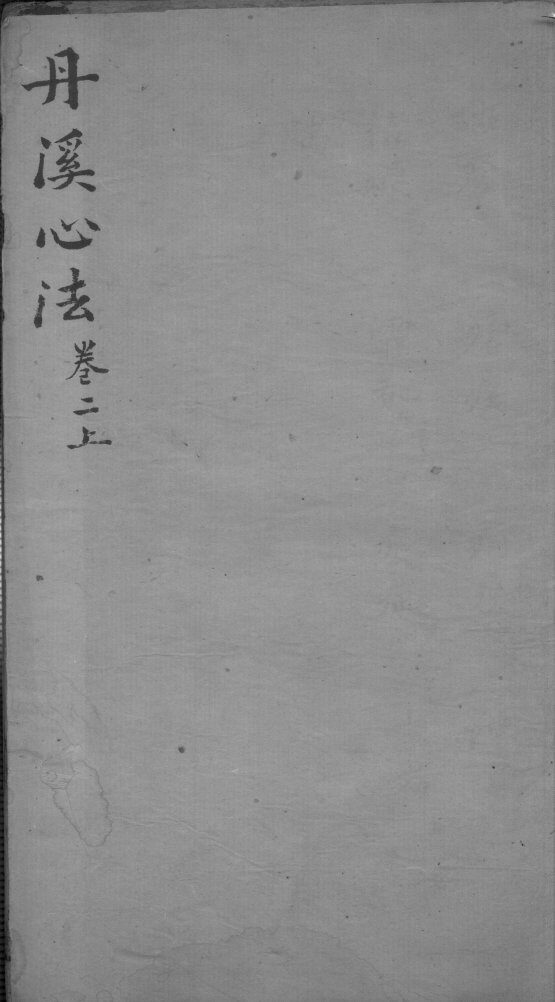 丹溪心法
卷二上